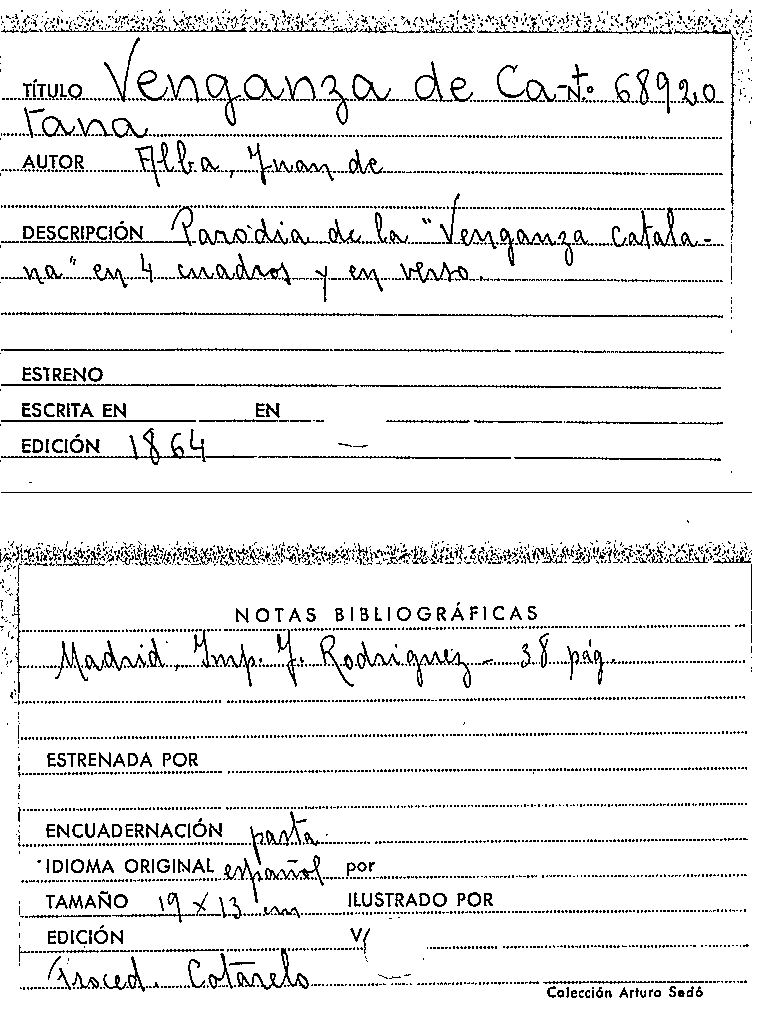 TÍTULO Venganza de Ca- N.º 68920
tana
AUTOR Alba, Juan de
DESCRIPCIÓN Parodia de la "Venganza catala-
na" en 4 cuadros y en verso.
ESTRENO
ESCRITA EN EN
EDICIÓN 1864 —
NOTAS BIBLIOGRÁFICAS
Madrid, Imp. J. Rodriguez - 38 pág.
ESTRENADA POR
ENCUADERNACIÓN pasta
IDIOMA ORIGINAL español por
TAMAÑO 19 x 13 cm ILUSTRADO POR
EDICIÓN V/
Proced. Cotarelo —
Colección Arturo Sedó